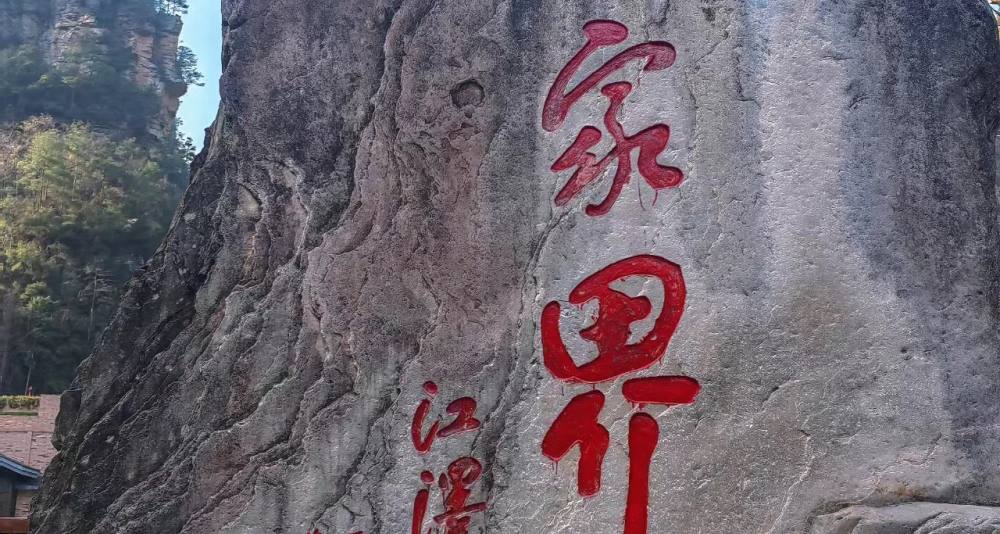 家界
江泽